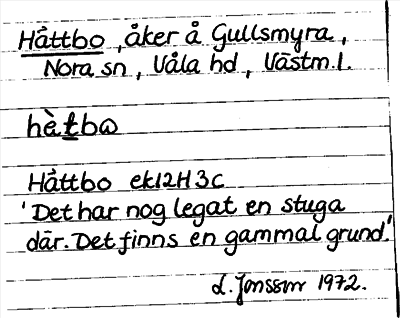 Håttbo, åker å Gullsmyra,
Nora sn, Våla hd, Västm.l.
hètbω
Håttbo ek12H3c
'Det har nog legat en stuga
där. Det finns en gammal grund.'
L. Jonsson 1972.